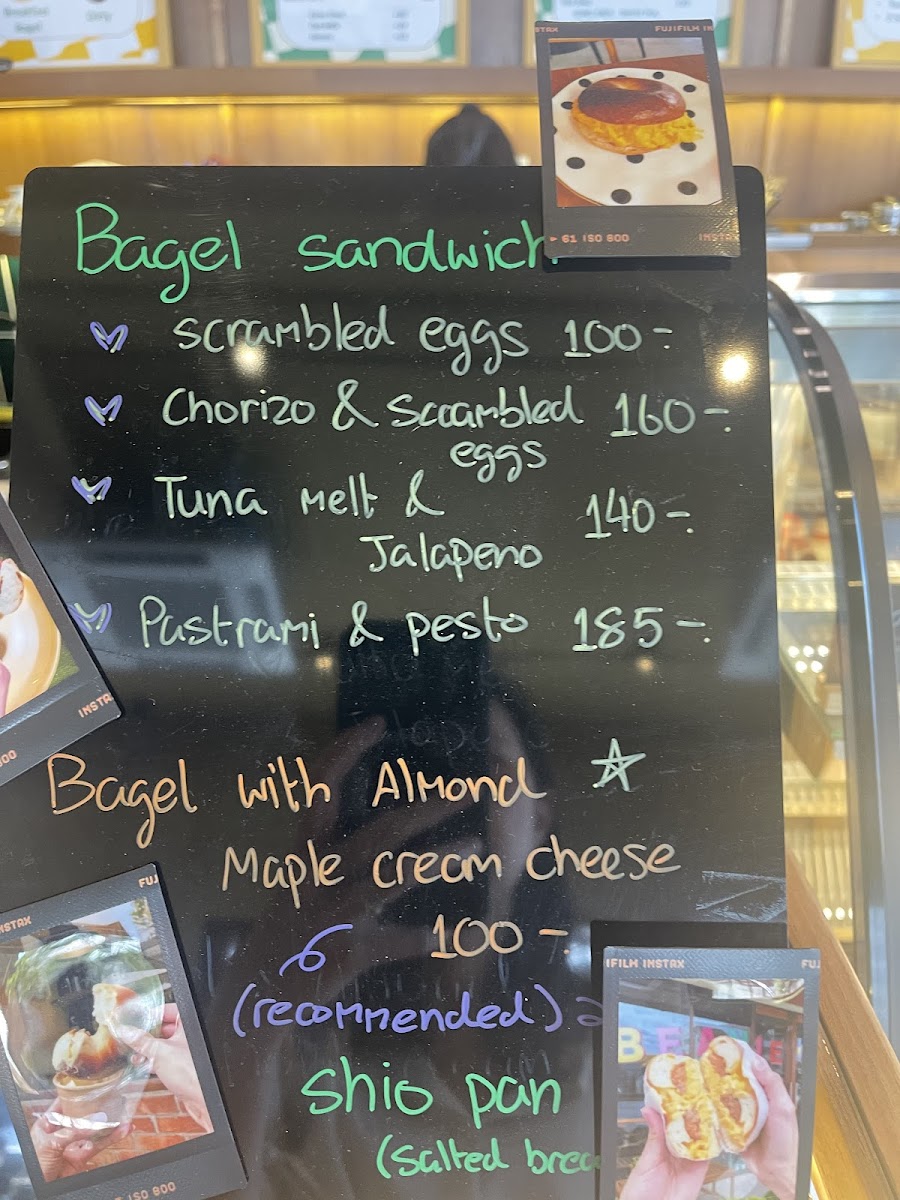 FUJIFILM IN
61 ISO 800
INSTA
Bagel sandwich
scrambled eggs 100-
Chorizo & Scrambled 160-
eggs
Tuna melt & 140-
Jalapeno
Pastrami & pesto 185-
INSTA
Bagel with Almond
Maple cream cheese
100-
(recommended)
shio pan
(salted brea
FUJ
NSTAX
ISO 800
IFILM INSTAX FUJ
BEA